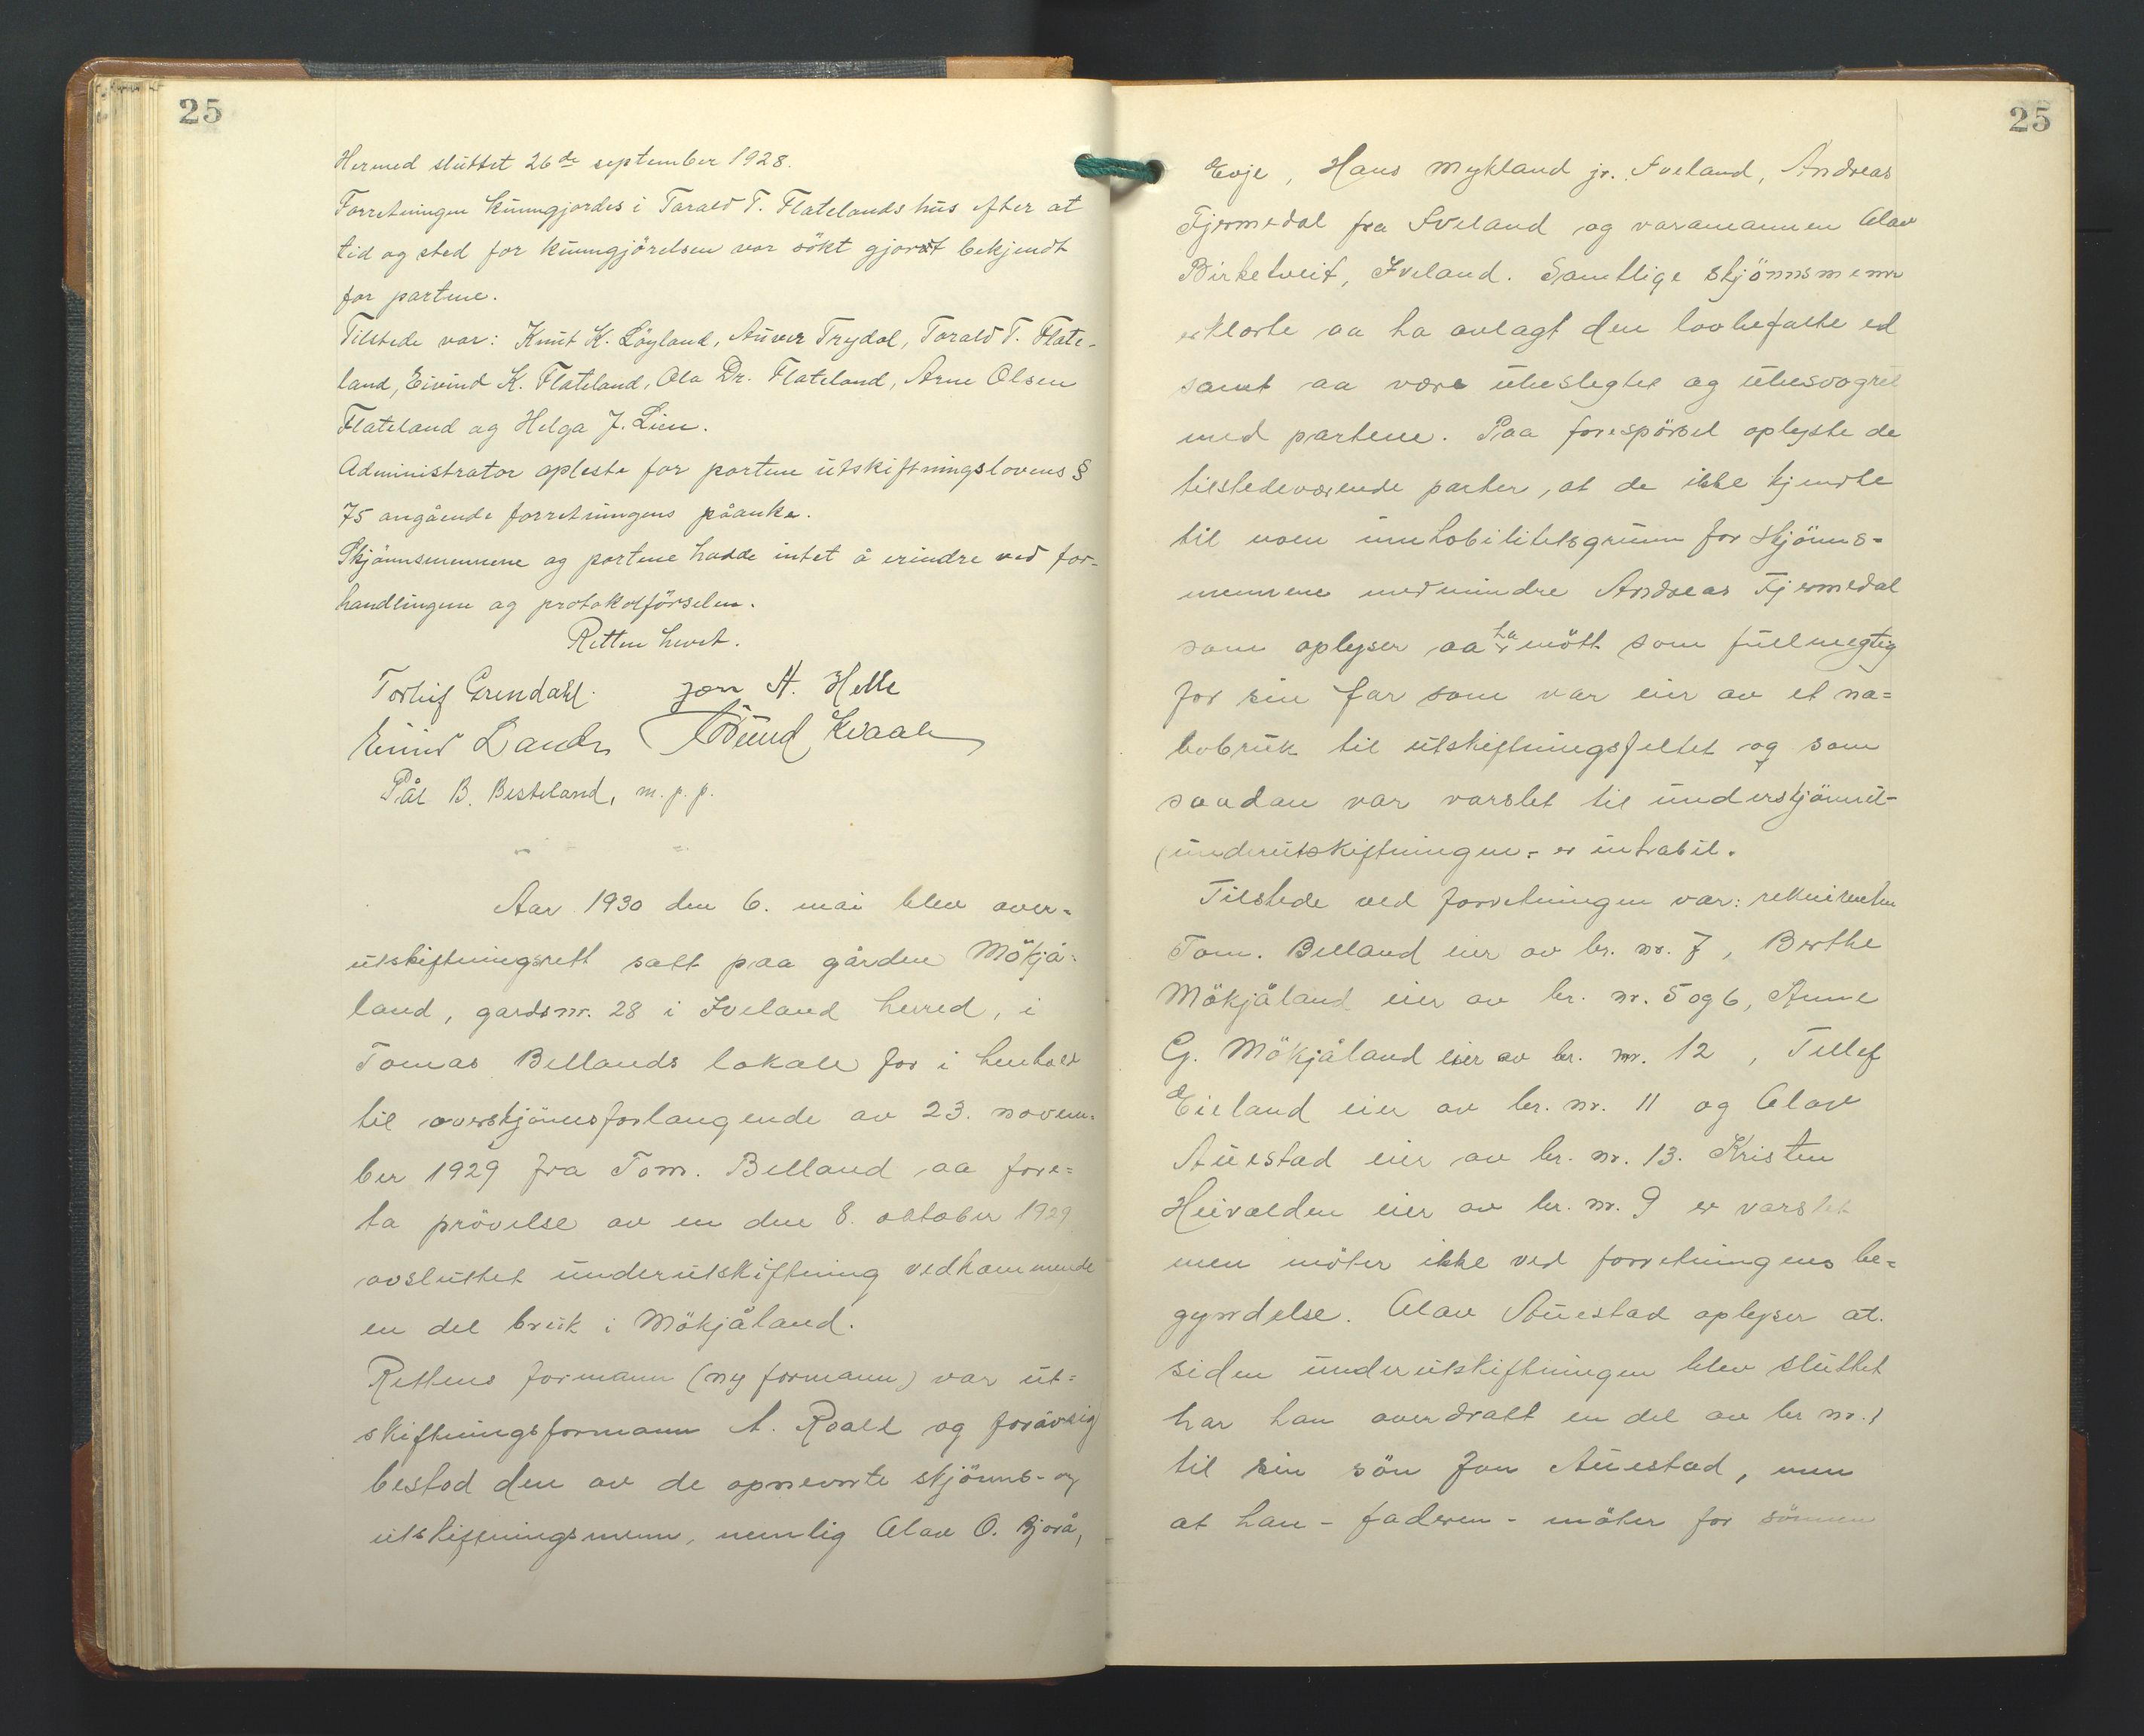 25
Hermed sluttet 26de september 1928.
Forretningen kunngjordes i Tarald T. Flatelands hus efter at
tid og sted for kunngjörelsen var sökt gjordt bekjendt
for partene.
Tilstede var: Knut K. Löyland, Anver Trydal, Tarald T. Flate-
land, Eivind K. Flateland, Ola Dr. Flateland, Arne Olsen
Flateland og Helga J. Lien.
Administrator opleste for partene utskiftningslovens §
75 angående forretningens påanke.
Skjönnsmennene og partene hadde intet å erindre ved for-
handlingene og protokolförselen.
Retten hevet.
Torleif Grendahl. Jon A. Helle
Eivind Lande Ånund Kvaale
Pål B. Besteland, m. p. p.
Aar 1930 den 6. mai blev over-
utskiftningsrett satt paa gården Mökjå-
land, gardsnr. 28 i Iveland herred, i
Tomas Bellands lokale for i henhold
til overskjönnsforlangende av 23. novem-
ber 1929 fra Tom. Belland aa fore=
ta prövelse av en den 8. oktober 1929
avsluttet underutskiftning vedkommende
en del bruk i Mökjåland.
Rettens formann (ny formann) var ut=
skiftningsformann A. Roald og forövrig
bestod den av de opnevnte skjönns- og
utskiftningsmenn, nemlig Olav O. Bjorå,
25
Evje, Hans Mykland jr. Iveland, Andreas
Fjermedal fra Iveland og varamannen Olav
Birketveit, Iveland. Samtlige skjönnsmenn
erklærte aa ha avlagt den lovbefalte ed
samt aa være ubeslegtet og ubesvogret
med partene. Paa forespörsel oplyste de
tilstedeværende parter, at de ikke kjendte
til noen innhabilitetsgrunn for skjönns-
mennene medmindre Andreas Fjermedal
som oplyser aa ha mött som fullmegtig
for sin far som var eier av et na=
bobruk til utskiftningsfeltet og som
saadan var varslet til underskjönnet-
(underutskiftningen- er inhabil.
Tilstede ved forretningen var: rekvirenten
Tom. Belland eier av br. nr. 7, Berthe
Mökjåland eier av br. nr. 5 og 6, Anne
G. Mökjåland eier av br. nr. 12, Tellef
Eieland eier av br. nr. 11 og Olav
Auestad eier av br. nr. 13. Kristen
Heivolden eier av br. nr. 9 er varslet
men möter ikke ved forretningens be=
gyndelse. Olav Auestad oplyser at.
siden underutskiftningen blev sluttet
har han overdratt en del av br nr. 1
til sin sön Jon Auestad, men
at han - faderen - möter for sönnen